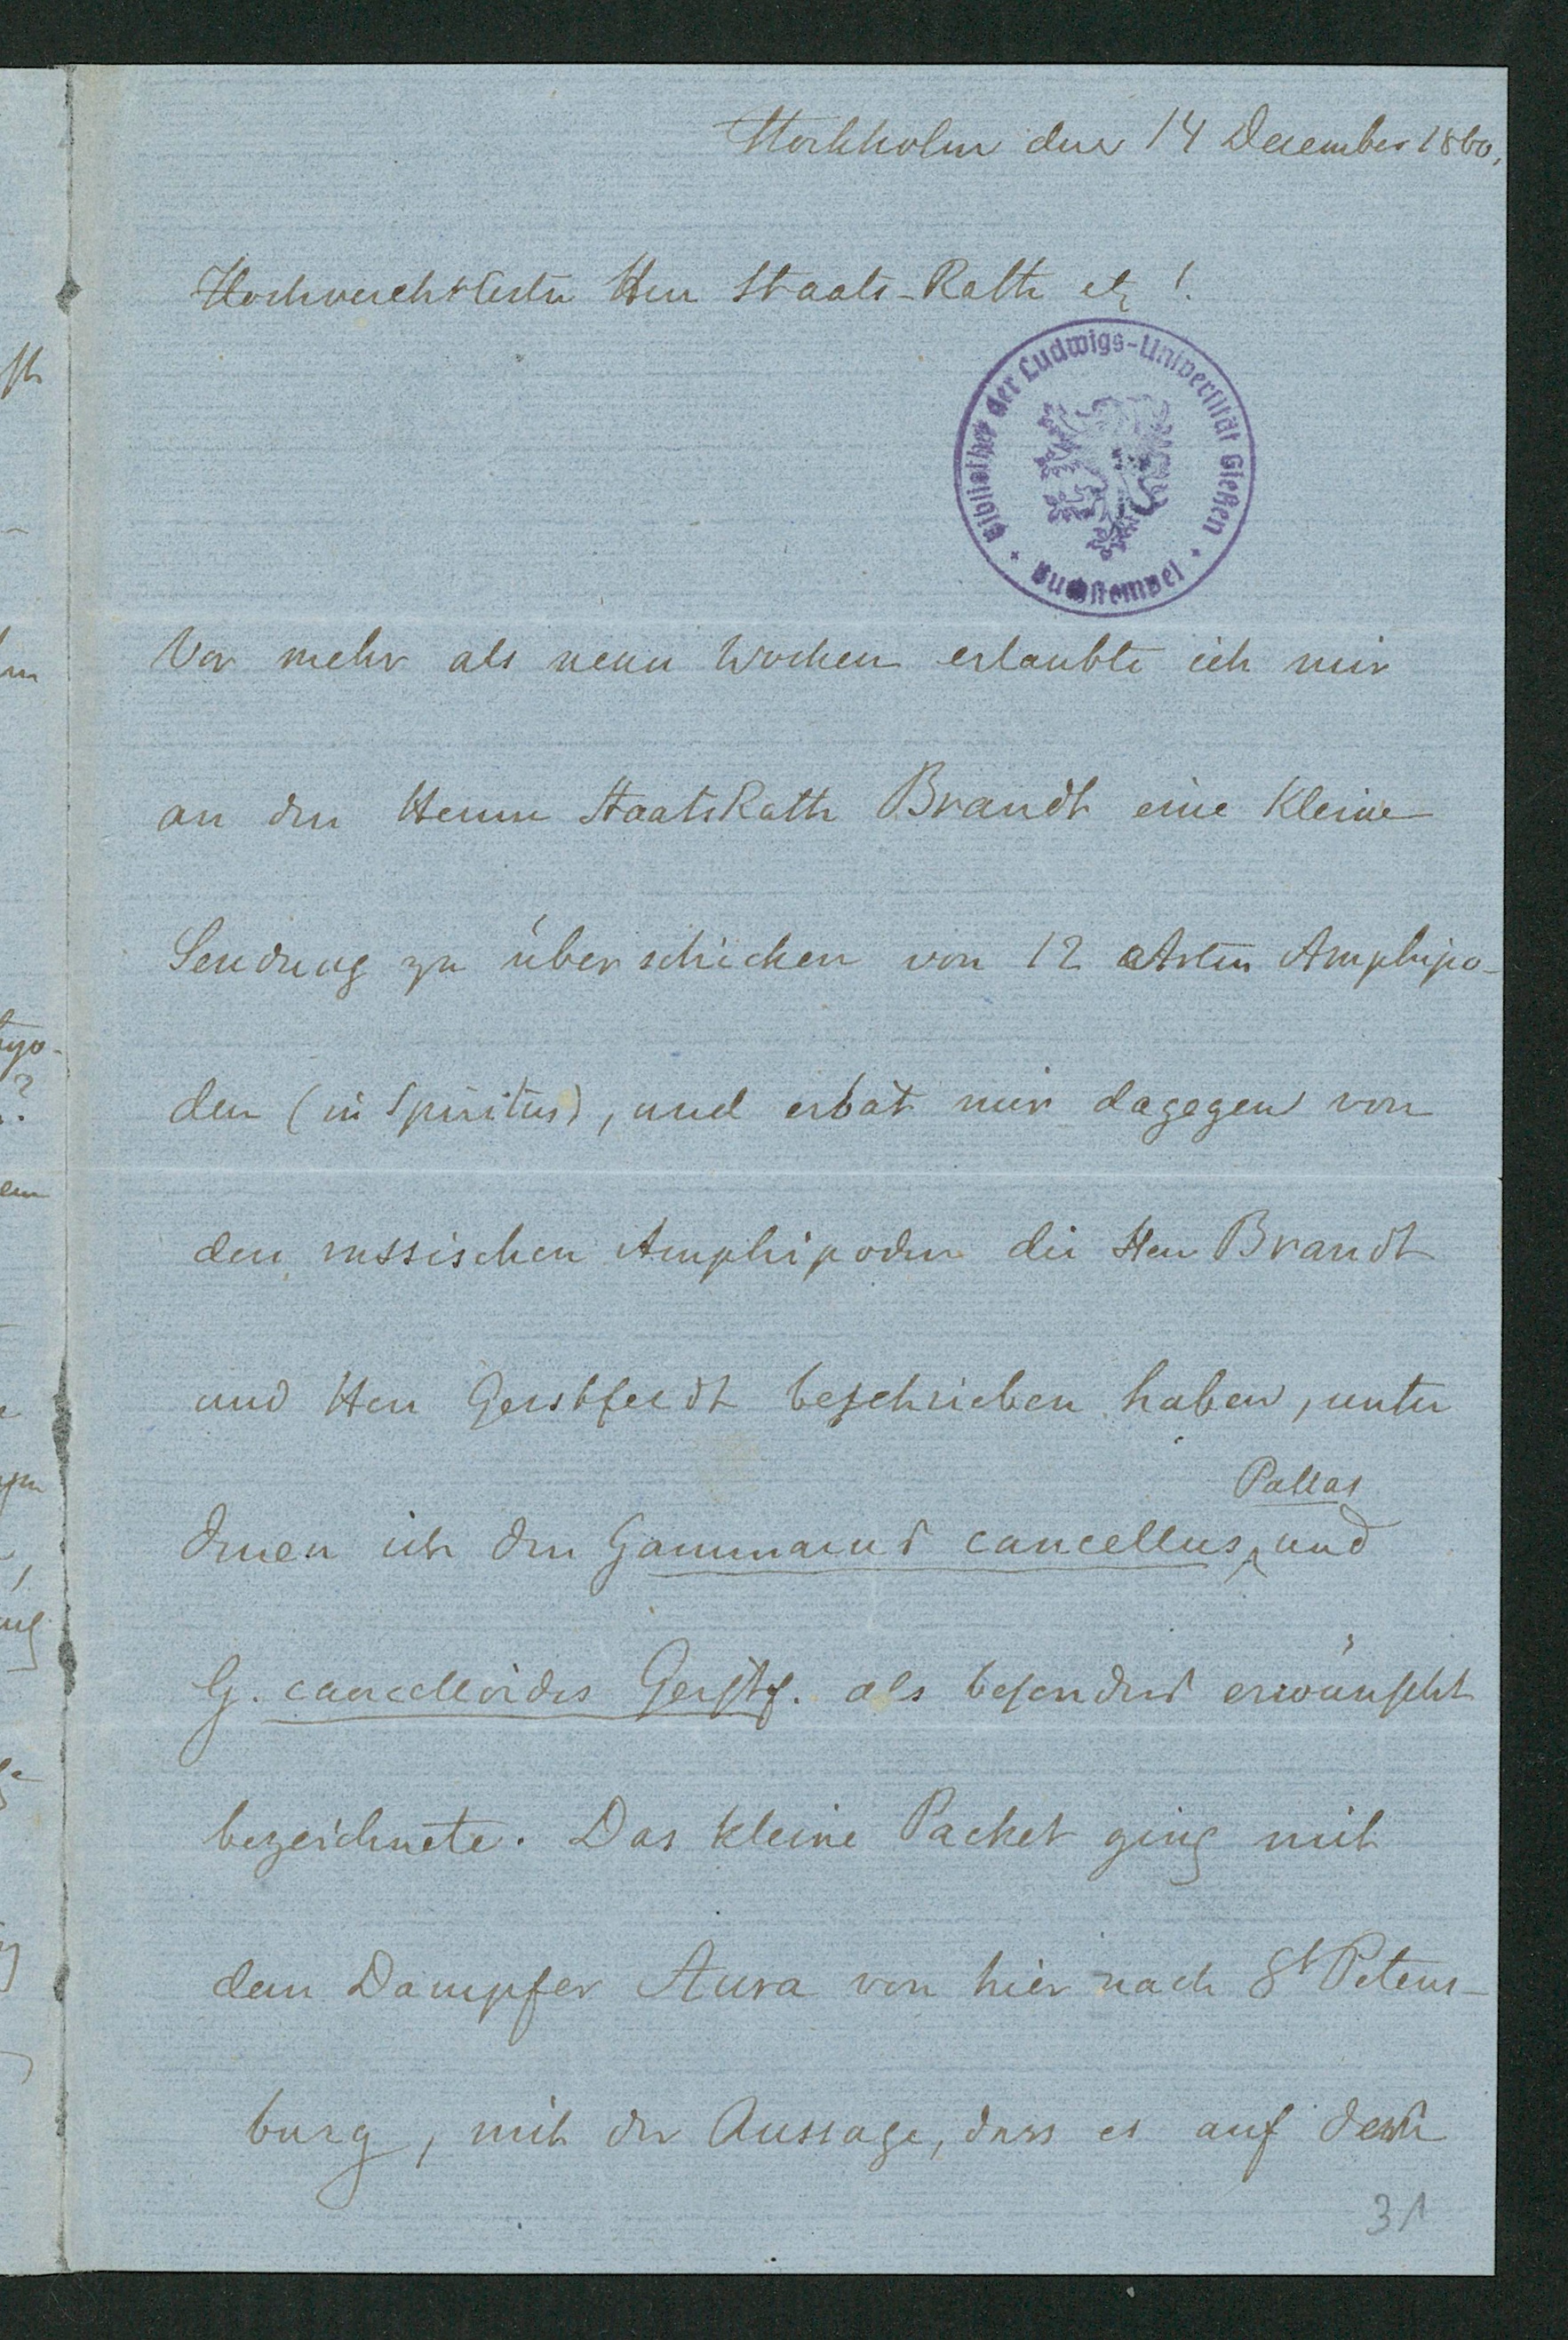 Stockholm den 14 December 1860.
Hochverehrtester Herr Staats-Rath etz!
Bibliothek der Ludwigs-Universität Gießen
Buchstempel
Vor mehr als neun Wochen erlaubte ich mir
an den Herrn StaatsRath Brandt eine kleine
Sendung zu überschicken von 12 Arten Amphipo-
den (in Spiritus), und erbat mir dagegen von
den russischen Amphipoden die Herr Brandt
und Herr Gerstfeldt beschrieben haben, unter
Pallas
denen ich den Gammarus cancellus und
G. cancelloides Gerstf. als besonders erwünscht
bezeichnete. Das kleine Packet ging mit
dem Dampfer Aura von hier nach St Peters-
burg, mit der Aussage, dass es auf dem
31